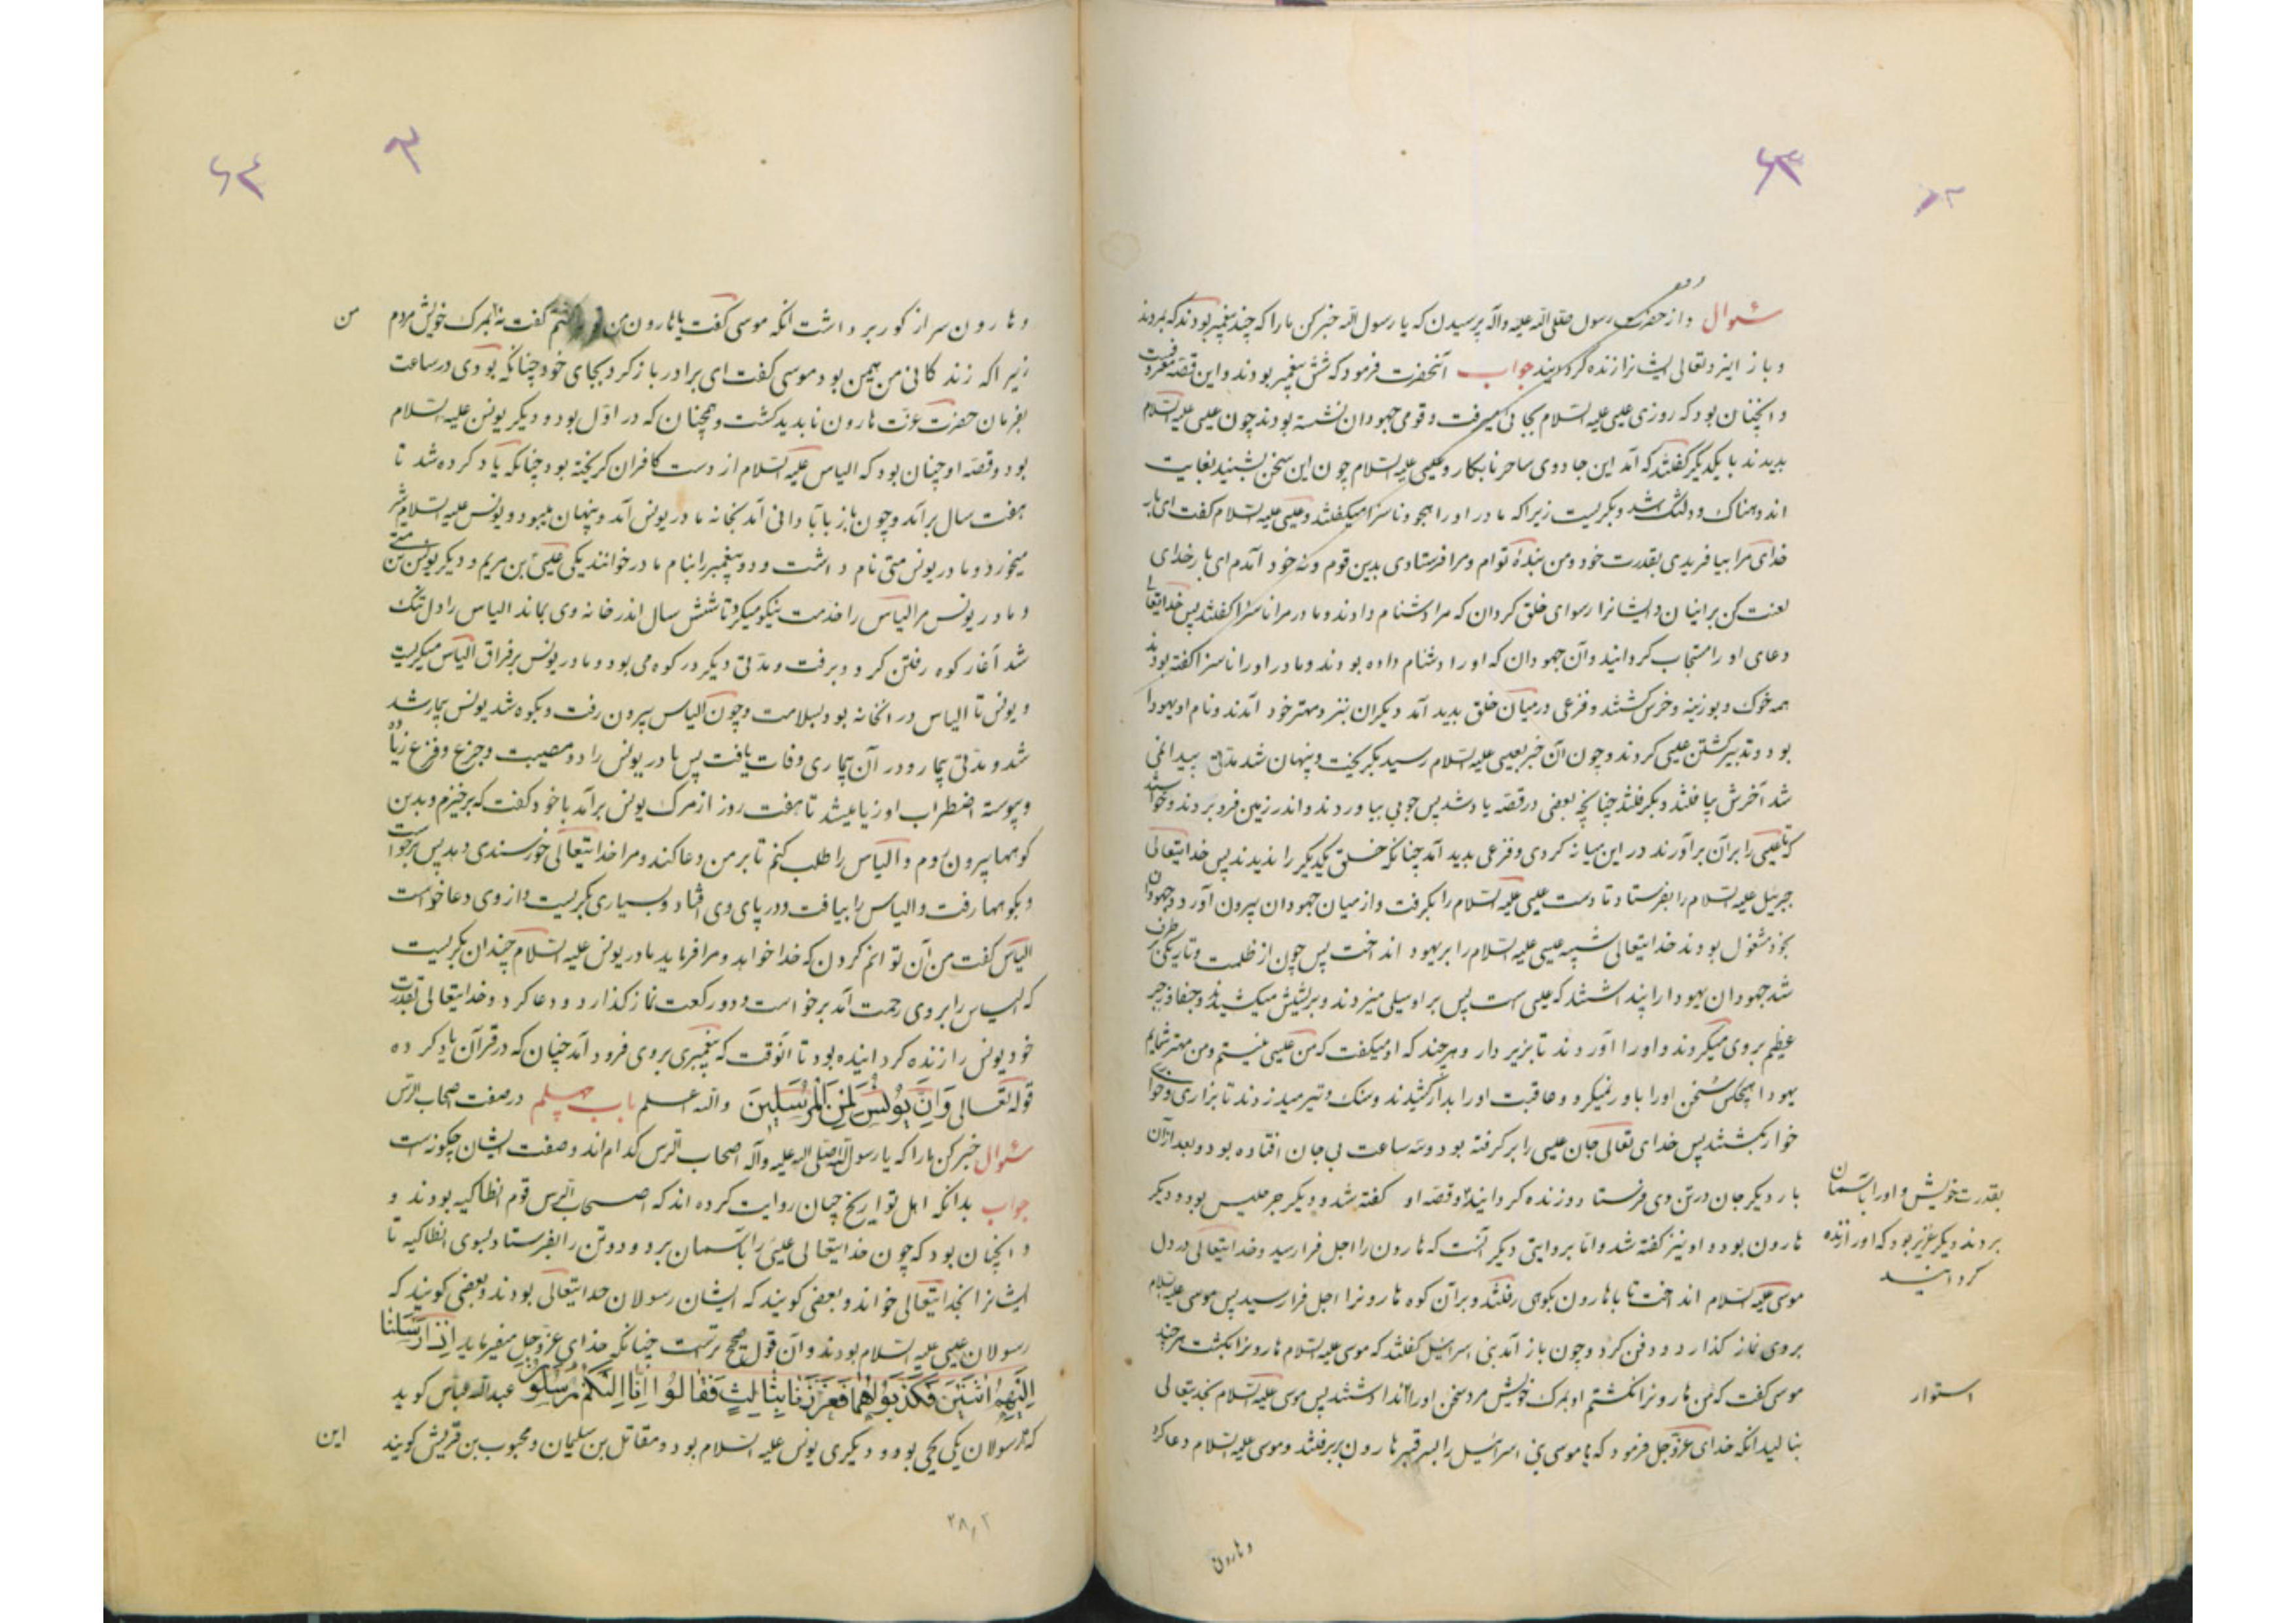 ۶۳
سئوال و از حضرت رسول صلی الله علیه وآله پرسیدن که یا رسول الله خبر کن ما را که چند پیغمبر بودند که بمردند
و باز ایزد تعالی ایشانرا زنده گردانیند جواب آنحضرت فرمود که شش پیغمبر بودند و این قصه معروفست
و آنچنان بود که روزی عیسی علیه السلام بجائی میرفت و قومی جهودان نشسته بودند چون عیسی علیه السلام
بدیدند با یکدیگر گفتند که آمد این جادوی ساحر نابکار و عیسی علیه السلام چون این سخن بشنید بغایت
اندوهناک و دلتنگ شد و بگریست زیرا که مادر او را بهجو و ناسزا میگفتند و عیسی علیه السلام گفت ای بار
خدای مرا بیافریدی بقدرت خود و من بندهٔ توام و مرا فرستادی بدین قوم و نه خود آمدم ای بار خدای
لعنت کن بر اینان و ایشانرا رسوای خلق گردان که مرا دشنام دادند و مادر مرا ناسزا گفتند پس خدایتعالی
دعای او را مستجاب گردانید و آن جهودان که او را دشنام داده بودند و مادر او را ناسزا گفته بودند
همه خوک و بوزینه و خرس گشتند و فزعی در میان خلق پدید آمد دیگران نیز و مهتر خود آمدند و نام او یهودا
بود و تدبیر کشتن عیسی کردند و چون آن خبر بعیسی علیه السلام رسید بگریخت و پنهان شد مدتی پیدا نمی
شد آخرش بیافتند و بگرفتند چنانچه بعضی در قصه یاد شد پس چوبی بیاوردند و اندر زمین فرو بردند و خواستند
که عیسی را بر آن برآورند در این میانه گردی و فزعی پدید آمد چنانکه خلق یکدیگر را ندیدند پس خدایتعالی
جبرئیل علیه السلام را بفرستاد تا دست عیسی علیه السلام را بگرفت و از میان جهودان بیرون آورد و جهودان
بخود مشغول بودند خدایتعالی شبیه عیسی علیه السلام را بر یهودا انداخت پس چون از ظلمت و تاریکی بر طرف
شد جهودان یهودا را پنداشتند که عیسی است پس بر او سیلی میزدند و بریشش میکشیدند و جفا و زجر
عظیم بر وی میکردند و او را آوردند تا بزیر دار و هر چند که او میگفت که من عیسی نیستم و من مهتر شمایم
یهودا هیچکس سخن او را باور نمیکرد و عاقبت او را بدار کشیدند و سنک و تیر میزدند تا بزاری و خواری
خوار بکشتند پس خدای تعالی جان عیسی را بر گرفته بود و سه ساعت بی جان افتاده بود و بعد از آن
بار دیگر جان در تن وی فرستاد و زنده گردانید و قصه او گفته شد و دیگر جرجیس بود و دیگر
بقدرت خویش و او را بآسمان
بردند دیگر عزیر بود که او را زنده
گردانید
هارون بود و او نیز گفته شد و اما بروایتی دیگر آنست که هارون را اجل فرا رسید و خدایتعالی در دل
موسی علیه السلام انداخت تا با هارون بکوهی رفتند و بر آن کوه هارونرا اجل فرا رسید پس موسی علیه السلام
بروی نماز گذارد و دفن کرد و چون باز آمد بنی اسرائیل گفتند که موسی علیه السلام هارونرا بکشت هر چند
موسی گفت که من هارونرا نکشتم او بمرک خویش مرد سخن او را نداشتند پس موسی علیه السلام بخدایتعالی
استوار
بنالید آنکه خدای عزوجل فرمود که یا موسی بنی اسرائیل را بسر قبر هارون بر برفتند و موسی علیه السلام دعا کرد
و هارون
۶۴
و هارون سر از گور برداشت آنکه موسی گفت یا هارون من گفت نه بمرک خویش مردم
من
زیرا که زندگانی من همین بود موسی گفت ای برادر باز گرد بجای خود چنانکه بودی در ساعت
بفرمان حضرت عزت هارون ناپدید گشت و همچنان که در اول بود و دیگر یونس علیه السلام
بود و قصه او چنان بود که الیاس علیه السلام از دست کافران گریخته بود چنانکه یاد کرده شد تا
هفت سال برآمد و چون باز بآبادانی آمد بخانه مادر یونس آمد و پنهان میبود و یونس علیه السلام شیر
میخورد و مادر یونس متی نام داشت و دو پیغمبر را بنام مادر خوانند یکی عیسی بن مریم و دیگر یونس بن متی
و مادر یونس مر الیاس را خدمت نیکو میکرد تا شش سال اندر خانه وی بماند الیاس را دل تنک
شد آغاز کوه رفتن کرد و برفت و مدتی دیگر در کوه می بود و مادر یونس بر فراق الیاس میگریست
و یونس تا الیاس در آنخانه بود بسلامت و چون الیاس بیرون رفت و بکوه شد یونس بیمار شد
شد و مدتی بیمار و در آن بیماری وفات یافت پس مادر یونس را دو مصیبت و جزع و فزع زیاده
و پیوسته اضطراب او زیا میشد تا هفت روز از مرک یونس برآمد با خود گفت که برخیزم و بدین
کوهها بیرون روم و الیاس را طلب کنم تا بر من دعا کند و مرا خدایتعالی خورسندی دهد پس برخواست
و بکوهها رفت و الیاس را بیافت و در پای وی افتاد و بسیاری بگریست و از وی دعا خواست
الیاس گفت من آن توانم کردن که خدا خواهد و مرا فرماید مادر یونس علیه السلام چندان بگریست
که الیاس را بروی رحمت آمد برخواست و دو رکعت نماز گذارد و دعا کرد و خدایتعالی بقدرت
خود یونس را زنده گردانیده بود تا آنوقت که پیغمبری بروی فرود آمد چنان که در قرآن یاد کرده
قوله تعالی وَاِنَّ یُونُسَ لَمِنَ الْمُرْسَلِینَ والله اعلم باب چهلم در صفت اصحاب الرس
سئوال خبر کن ما را که یا رسول الله صلی الله علیه وآله اصحاب الرس کدام اند و صفت ایشان چگونه است
جواب بدانکه اهل تواریخ چنان روایت کرده اند که اصحاب الرس قوم انطاکیه بودند و
و آنچنان بود که چون خدایتعالی عیسی را بآسمان برد و دو تن را بفرستاد بسوی انطاکیه تا
ایشانرا بخدایتعالی خواند و بعضی گویند که ایشان رسولان خدایتعالی بودند و بعضی گویند که
رسولان عیسی علیه السلام بودند و آن قول صحیح تر است چنانکه خدای عزوجل میفرماید اِذْ اَرْسَلْنَا
اِلَیْهِمُ اثْنَیْنِ فَکَذَّبُوهُمَا فَعَزَّزْنَا بِثَالِثٍ فَقَالُوا اِنَّا اِلَیْکُمْ مُرْسَلُونَ عبدالله عباس گوید
که رسولان یکی یحیی بود و دیگری یونس علیه السلام بود و مقاتل بن سلیمان و محبوب بن قریش گویند
این